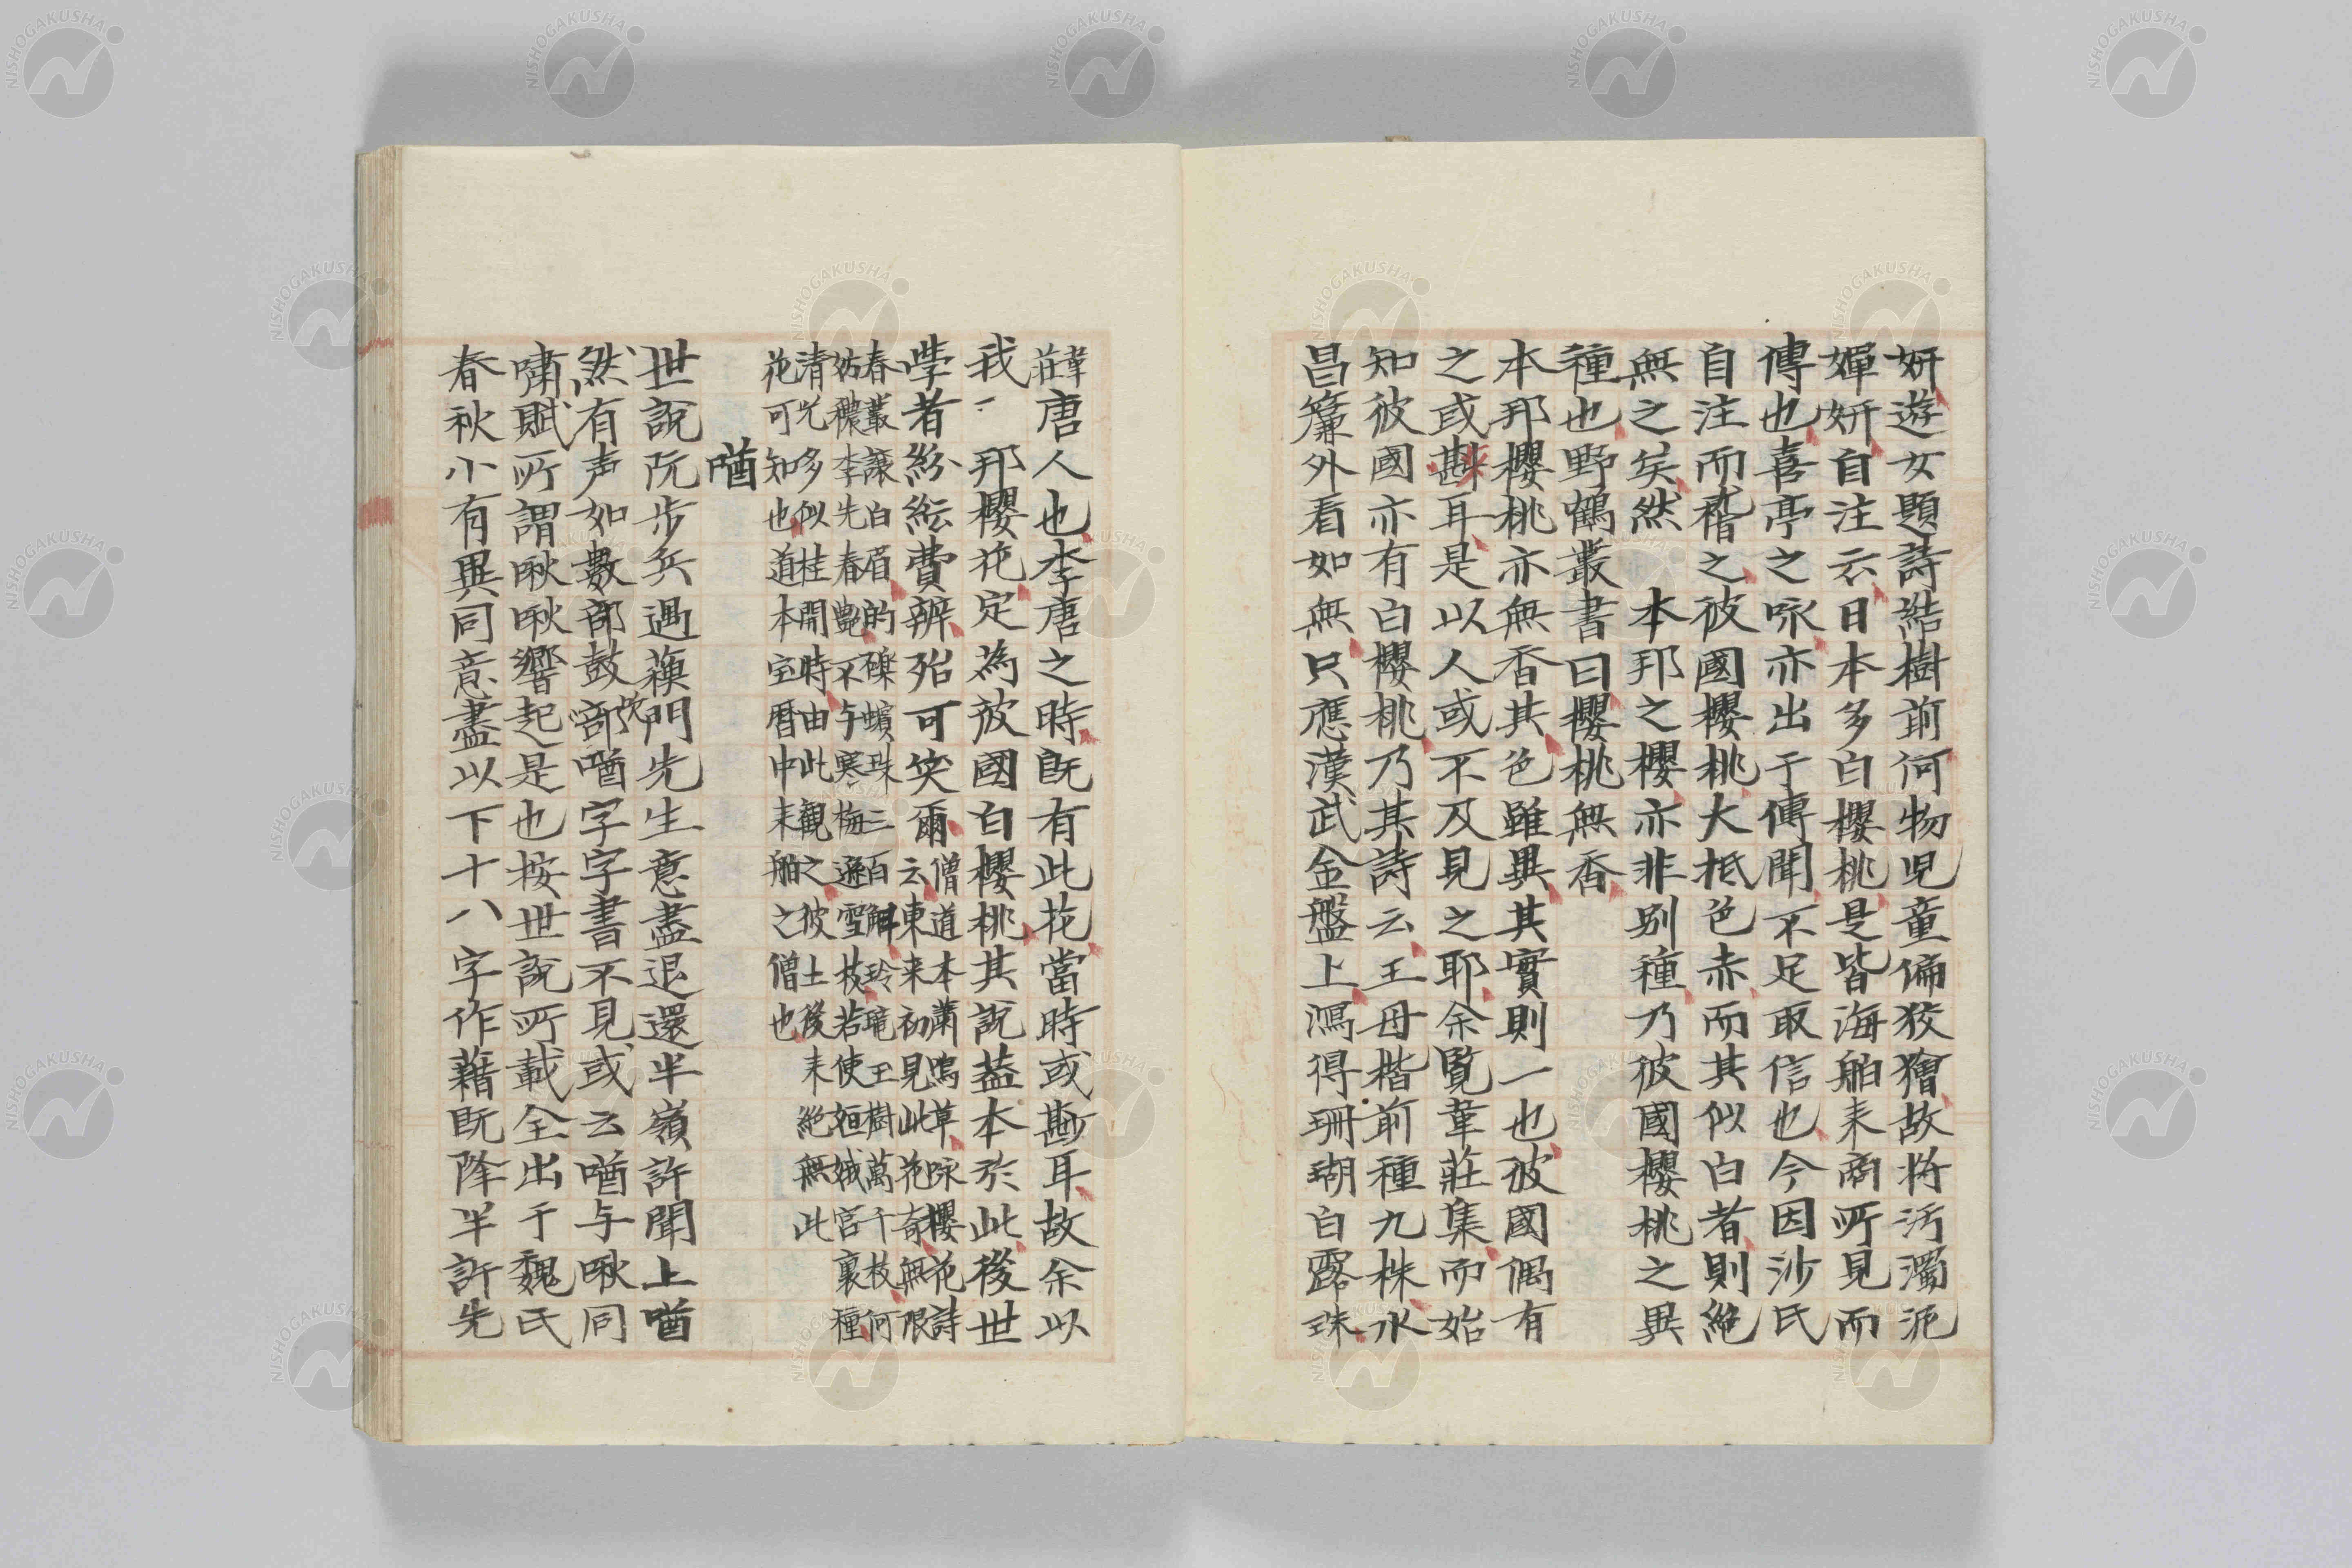 妍遊女題詩結樹前何物児童偏狡獪故将汚濁浼
嬋妍自注云日本多白櫻桃是皆海舶耒商所見而
傳也喜亭之咏亦出于傳聞不足取信也今因沙氏
自注而稽之彼國櫻桃大抵色赤而其似白者則絶
無之矣然　本邦之櫻亦非别種乃彼國櫻桃之異
種也野鶴叢書曰櫻桃無香
本邦櫻桃亦無香其色雖異其實則一也彼國偶有
之或尠耳是以人或不及見之耶余覧韋莊集而始
知彼國亦有白櫻桃乃其詩云王母楷前種九株水
昌簾外看如無只應漢武金盤上瀉得珊瑚白露珠
韋
莊唐人也李唐之時既有此花當時或尠耳故余以
我　邦櫻花定為彼國白櫻桃其説葢本於此後世
学者紛紜費辨殆可笑爾
僧道本蕭鳴草咏櫻花詩
云東来初見此花奇無限
春叢譲白眉的礫蠙珠三百解玲瓏玉樹萬千枝何
妨穠李先春艶不与寒梅遜雪枝若使姮娥宮裏種
清光多似桂開時由此觀之彼土後耒絶無此
花可知也道本宝暦中耒舶之僧也
噾
世説阮步兵遇蘓門先生意盡退還半嶺許聞上噾
然有声如數部鼓部噾字字書不見或云噾与啾同
嘯賦所謂啾啾響起是也按世説所載全出于魏氏
春秋小有異同意盡以下十八字作藉既降半許先